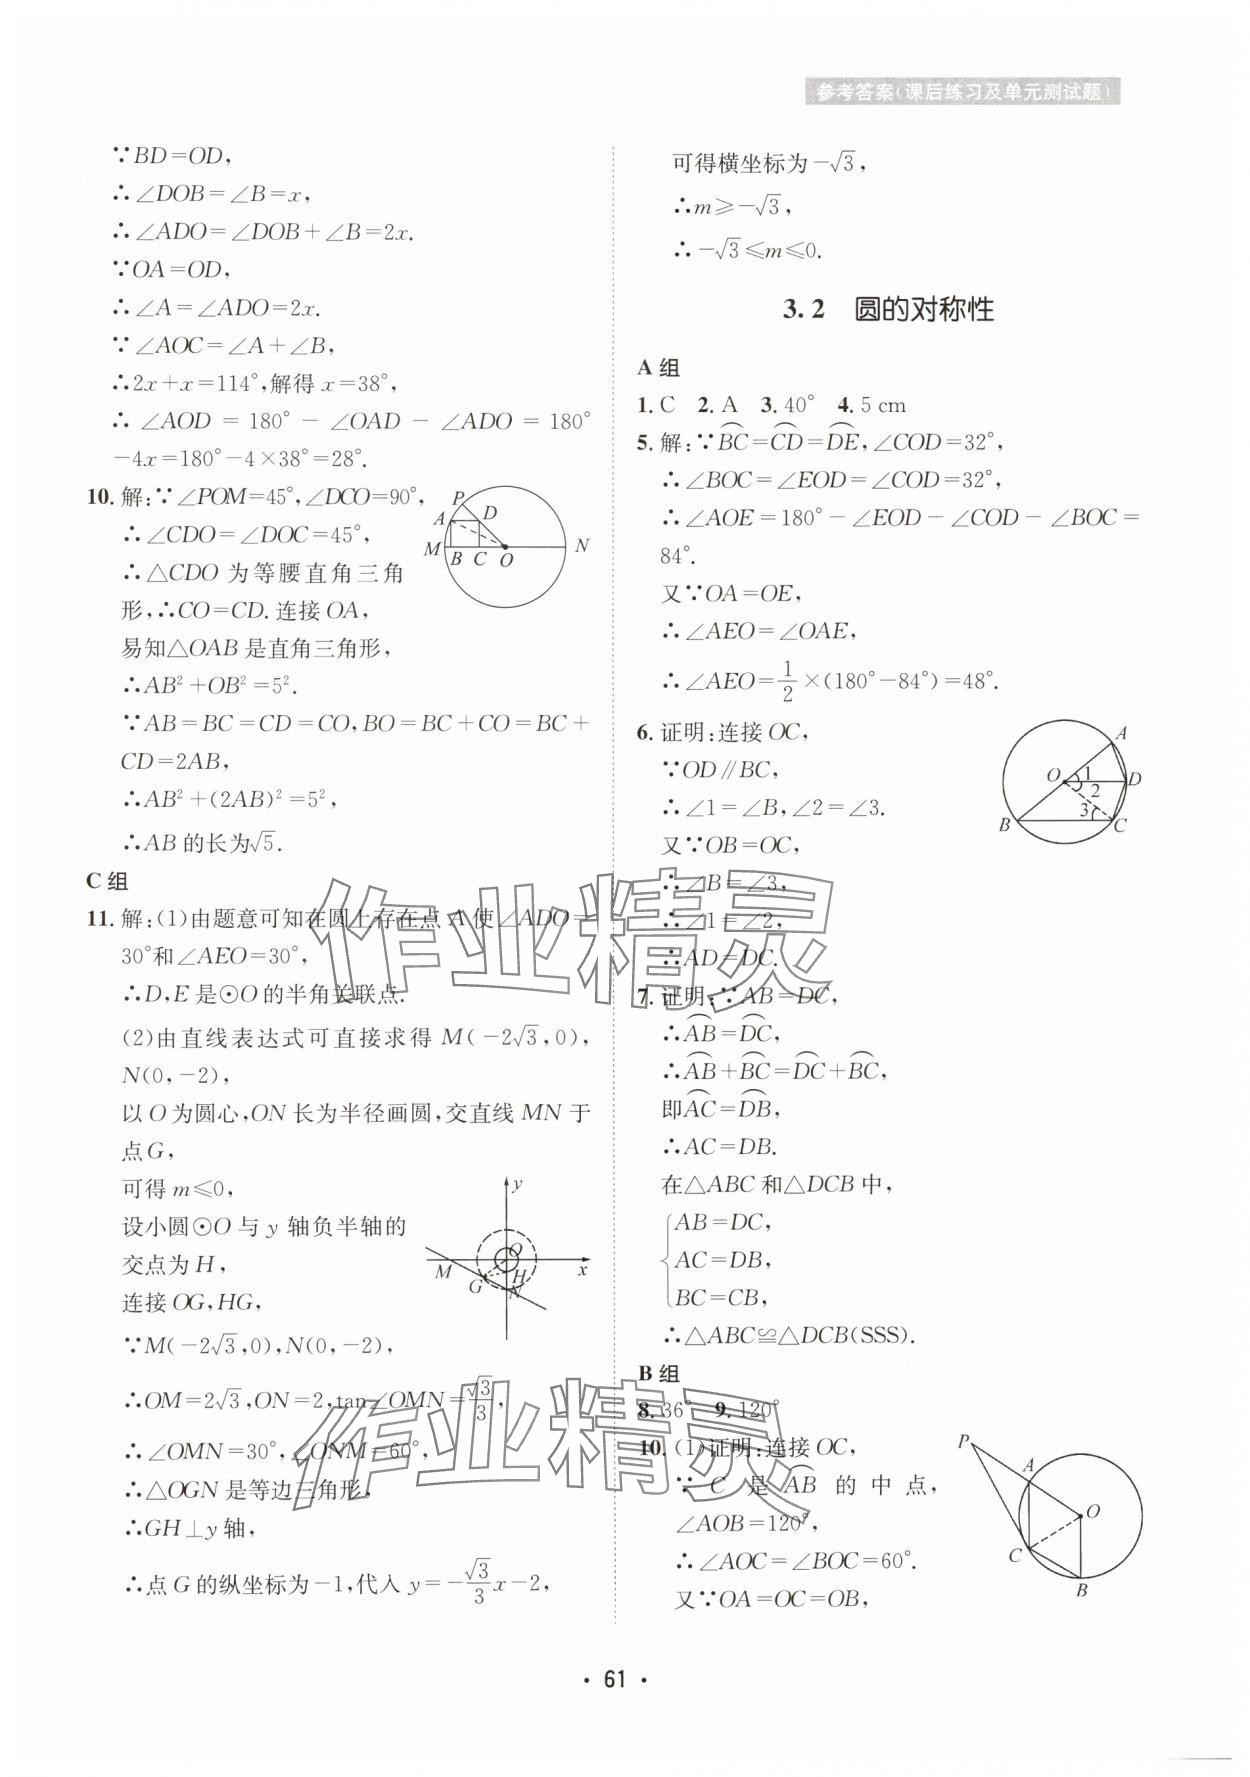 参考答案(课后练习及单元测试题)
∵BD=OD,
∴∠DOB=∠B=x,
∴∠ADO=∠DOB+∠B=2x.
∵OA=OD,
∴∠A=∠ADO=2x.
∵∠AOC=∠A+∠B,
∴2x+x=114°,解得 x=38°,
∴∠AOD=180°-∠OAD-∠ADO=180°
-4x=180°-4×38°=28°.
10. 解:∵∠POM=45°,∠DCO=90°,
∴∠CDO=∠DOC=45°,
∴△CDO 为等腰直角三角
形,∴CO=CD. 连接 OA,
易知△OAB 是直角三角形,
∴AB²+OB²=5².
∵AB=BC=CD=CO,BO=BC+CO=BC+
CD=2AB,
∴AB²+(2AB)²=5²,
∴AB 的长为√5.
P
A
D
M
B
C
O
N
C 组
11. 解:(1)由题意可知在圆上存在点 A 使∠ADO=
30°和∠AEO=30°,
∴D,E 是⊙O 的半角关联点.
(2)由直线表达式可直接求得 M(-2√3,0),
N(0,-2),
以 O 为圆心,ON 长为半径画圆,交直线 MN 于
点 G,
可得 m≤0,
设小圆⊙O 与 y 轴负半轴的
交点为 H,
连接 OG,HG,
∵M(-2√3,0),N(0,-2),
∴OM=2√3,ON=2,tan∠OMN=√3/3,
∴∠OMN=30°,∠ONM=60°,
∴△OGN 是等边三角形,
∴GH⊥y 轴,
∴点 G 的纵坐标为-1,代入 y=-√3/3x-2,
y
O
M
G
H
N
x
可得横坐标为-√3,
∴m≥-√3,
∴-√3≤m≤0.
3.2 圆的对称性
A 组
1. C 2. A 3. 40° 4. 5 cm
5. 解:∵⌒BC=⌒CD=⌒DE,∠COD=32°,
∴∠BOC=∠EOD=∠COD=32°,
∴∠AOE=180°-∠EOD-∠COD-∠BOC=
84°.
又∵OA=OE,
∴∠AEO=∠OAE,
∴∠AEO=1/2×(180°-84°)=48°.
6. 证明:连接 OC,
∵OD∥BC,
∴∠1=∠B,∠2=∠3.
又∵OB=OC,
∴∠B=∠3,
∴∠1=∠2,
∴AD=DC.
A
O
1
2
D
3
B
C
7. 证明:∵AB=DC,
∴⌒AB=⌒DC,
∴⌒AB+⌒BC=⌒DC+⌒BC,
即⌒AC=⌒DB,
∴AC=DB.
在△ABC 和△DCB 中,
AB=DC,
AC=DB,
BC=CB,
∴△ABC≌△DCB(SSS).
B 组
8. 36° 9. 120°
10. (1)证明:连接 OC,
∵ C 是 ⌒AB 的中点,
∠AOB=120°,
∴∠AOC=∠BOC=60°.
又∵OA=OC=OB,
P
A
O
C
B
作业精灵
作业精灵
· 61 ·